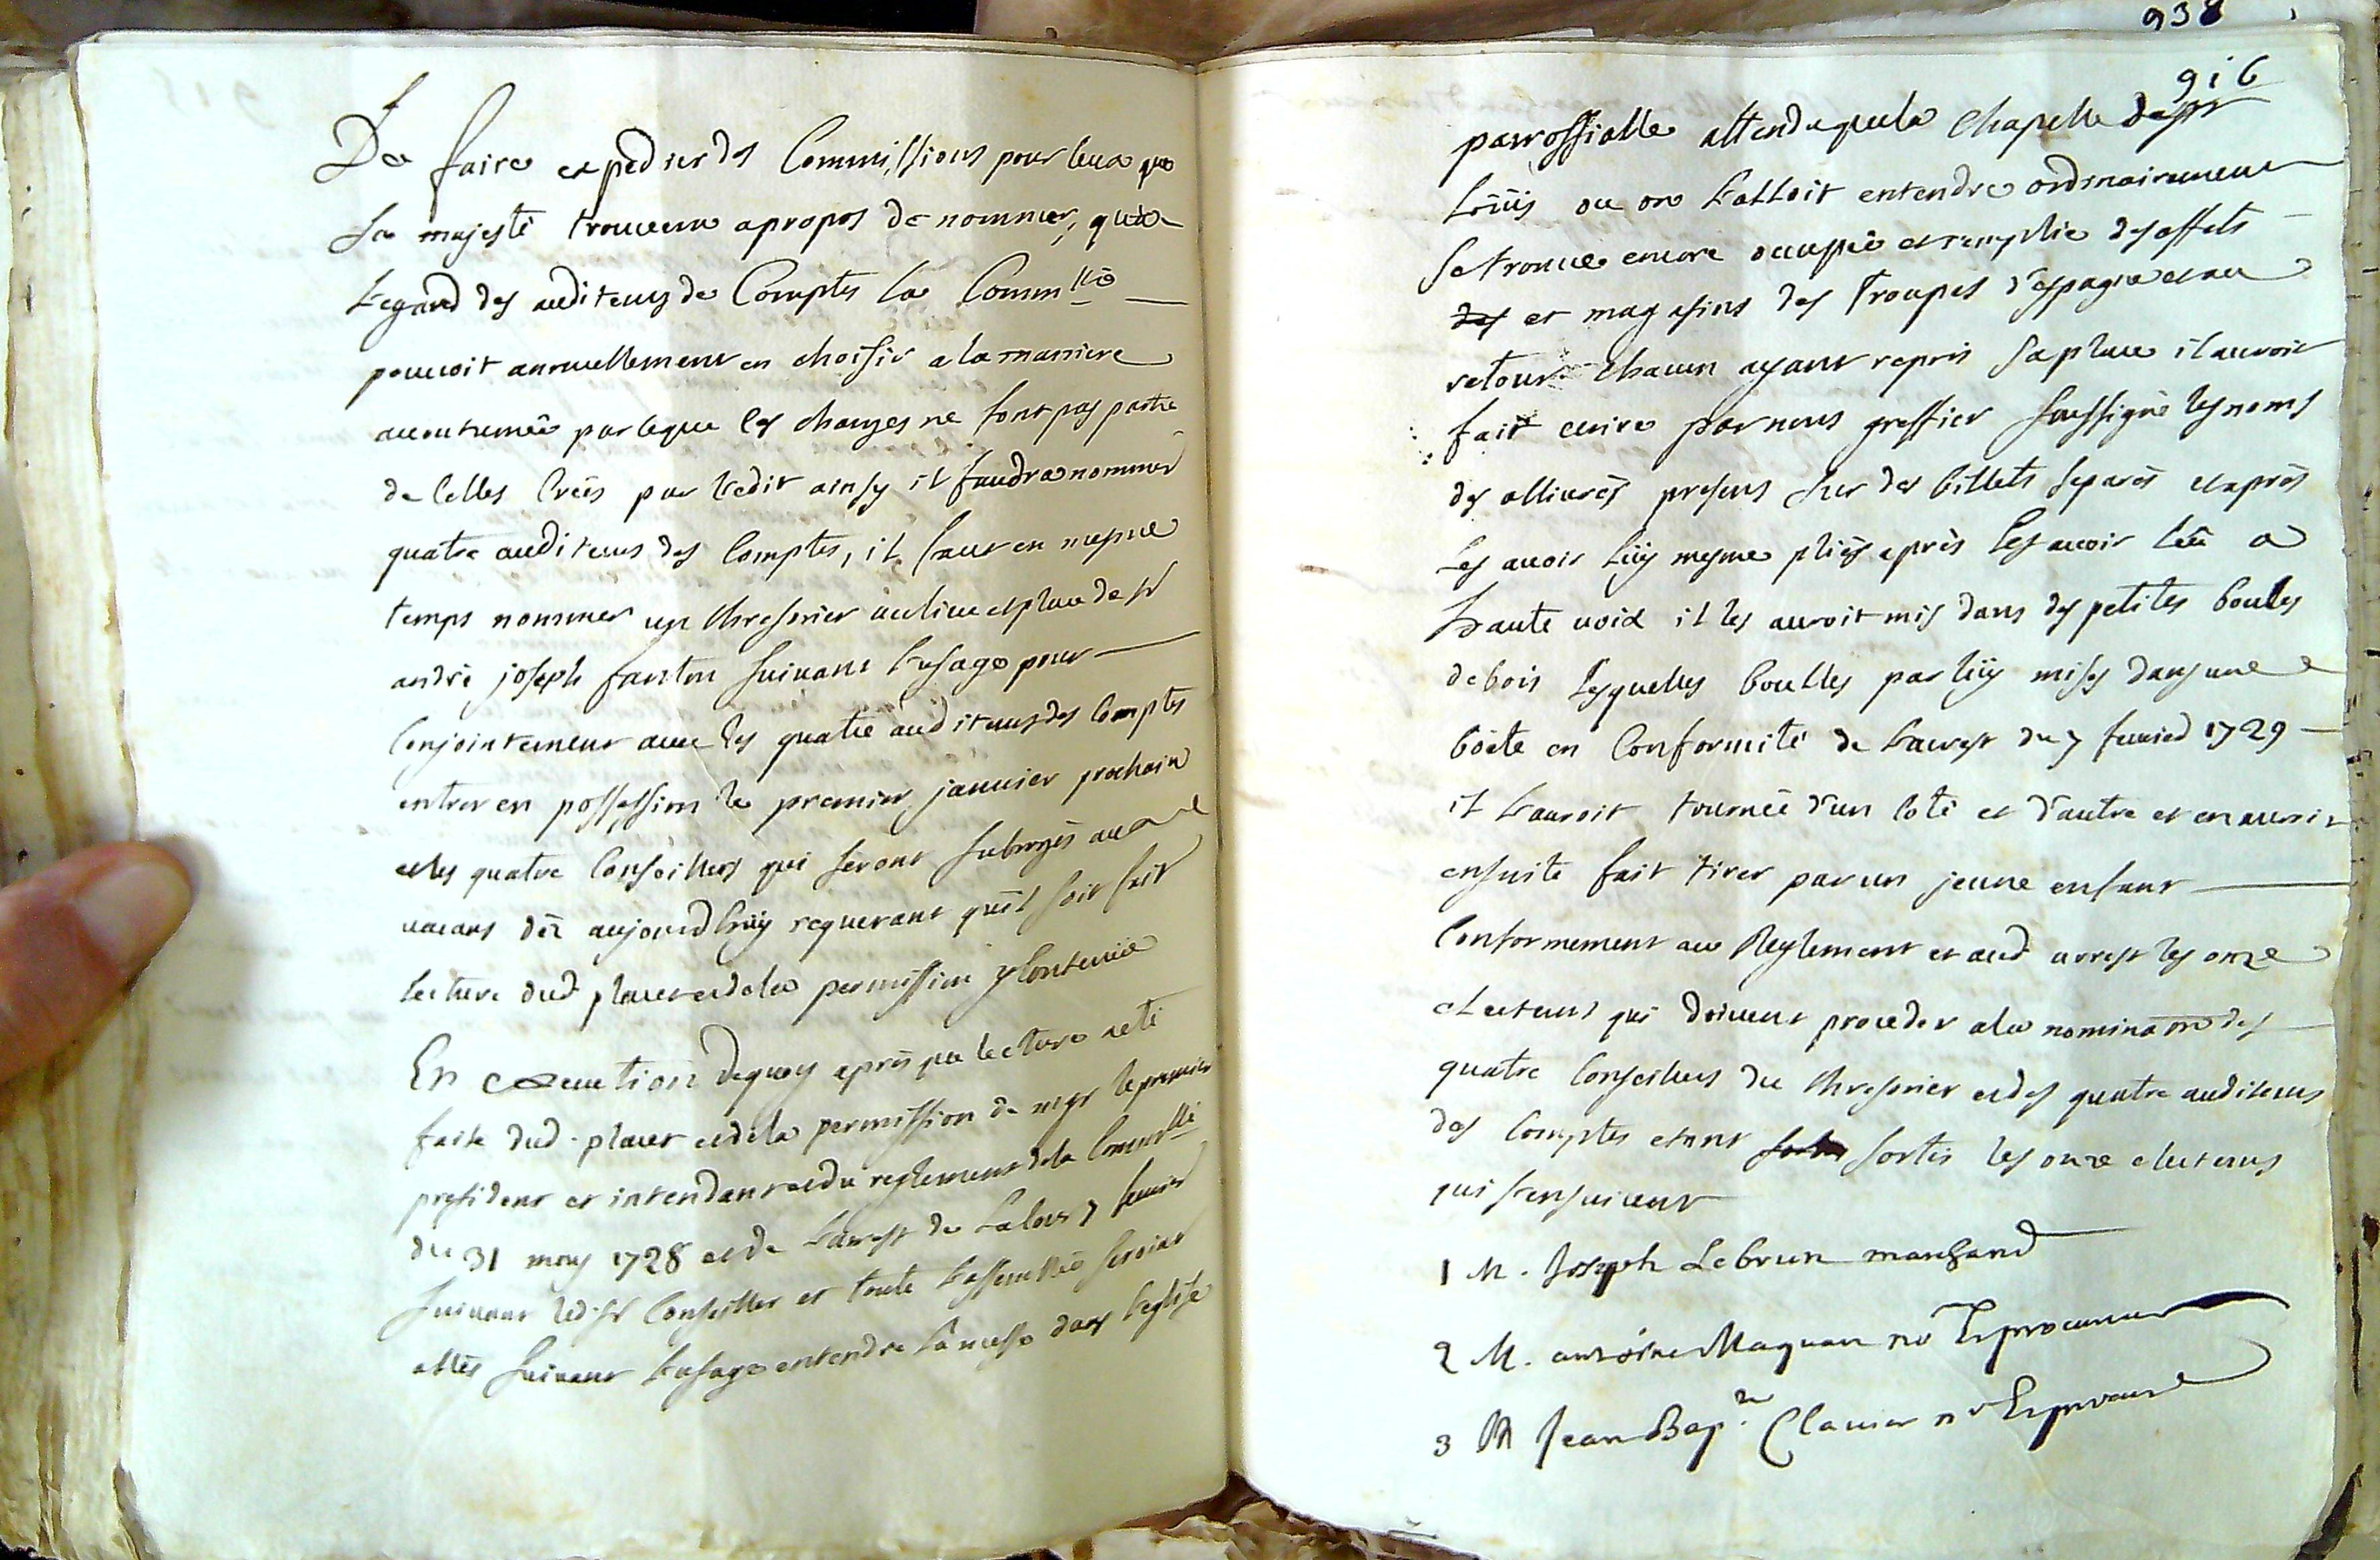 De faire expedier des Commissions pour ceux que
Sa majesté trouvera apropos de nommer, qu'a
L'egard des auditeurs de Comptes la Comm^té
pouvoit annuellement en choisir a la maniere
accoutumée parceque les charges ne font pas partie
de Celles Creés par l'edit ainsy il faudra nommer
quatre auditeurs des Comptes, il faut en mesme
temps nommer un thresorier au lieu et place de Sr
andré joseph fanton suivant L'usage pour
Conjointement avec les quatre auditeurs des Comptes
entrer en possession le premier janvier prochain
et les quatre Conseillers qui seront subrogés aux
vacans dez aujourdhuy requerant qu'il soit fait
lecture dud placet et de la permission y Contenüe
En execution dequoy aprés que lecture a eté
faite dud. placet et de la permission de mgr le premier
president et intendant et du reglement de la Comm^té
du 31 may 1728 et de L'arrest de La Cour 7 fevrier
suivant led. Sr Conseiller et toute L'assemblée seroint
allés suivant L'usage entendre La messe dans L'eglise
938
916
parrossialle attendu que la Chapelle de St
Loüis ou on L'alloit entendre ordinairement
Se trouve encore occupée et remplie des effets
des et magasins des Troupes d'espagne et au
retour Chacun ayant repris sa place il auroit
fait ecrire par nous greffier soussigné les noms
des allivrés presens sur des billets separés et aprés
Les avoir Luy mesme pliés aprés Les avoir leû a
haute voix il les auroit mis dans des petites boules
de bois Lesquelles boulles par luy mises dans une
boëte en Conformité de L'arrest du 7 fevrier 1729
il L'auroit tournée d'un Coté et d'autre et en auroit
ensuite fait tirer par un jeune enfant
Conformement au Reglement et aud arrest les onze
electeurs qui doivent proceder a la nominaon des
quatre Conseillers du thresorier et des quatre auditeurs
des Comptes etant sortis les onze electeurs
qui s'ensuivent
1 M. Joseph Lebrun marchand
2 M. antoine Maquan nr Et procureur
3 M Jean Bap^te Clavier nr Et procureur